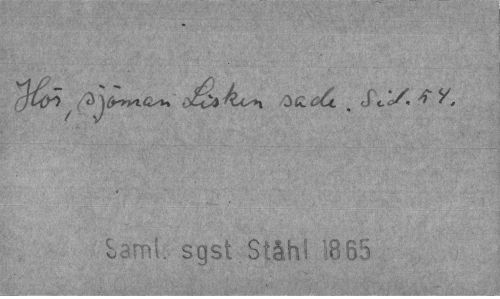 Hör, sjöman Lisken sade. Sid. 54.
Saml. sgst Ståhl 1865